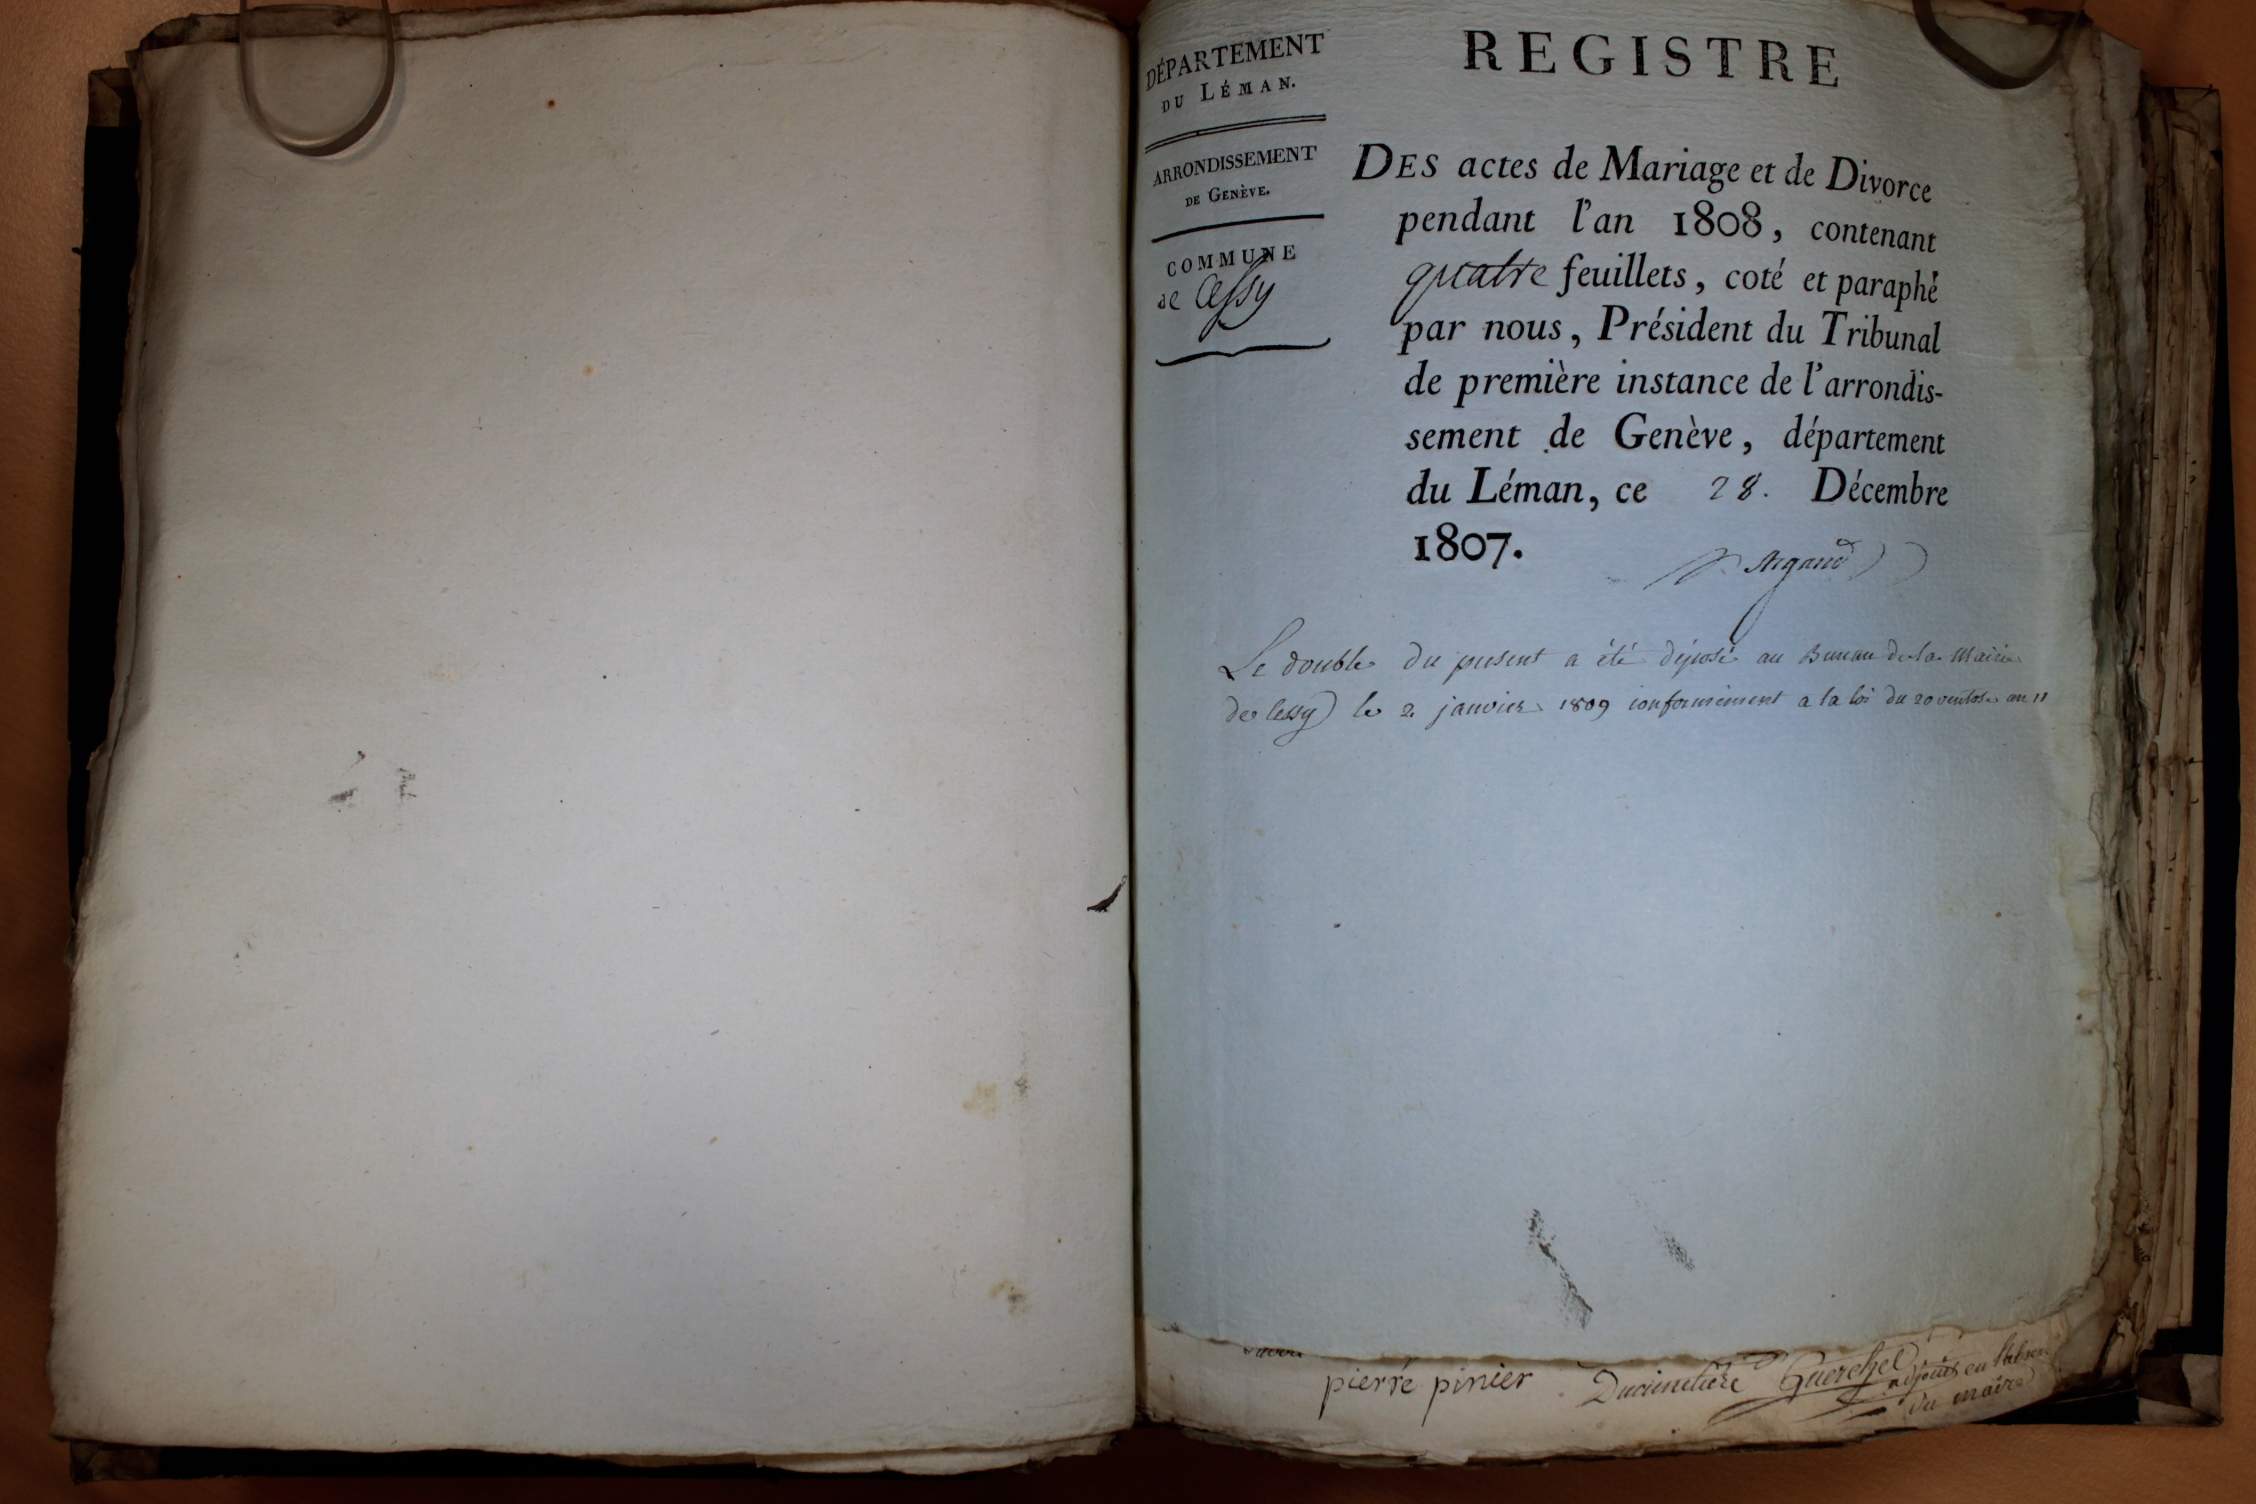 DÉPARTEMENT
DU LÉMAN.
ARRONDISSEMENT
DE GENÈVE.
COMMUNE
de Cessy
REGISTRE
DES actes de Mariage et de Divorce
pendant l'an 1808, contenant
quatre feuillets, coté et paraphé
par nous, Président du Tribunal
de première instance de l'arrondis-
sement de Genève, département
du Léman, ce 28. Décembre
1807.
Argand
Le double du present a été déposé au Bureau de la Mairie
de Cessy le 2 janvier 1809 conformément a la loi du 20 ventose an 11
pierre pinier Ducimetière Guerchet
adjoint en l'absence
du maire